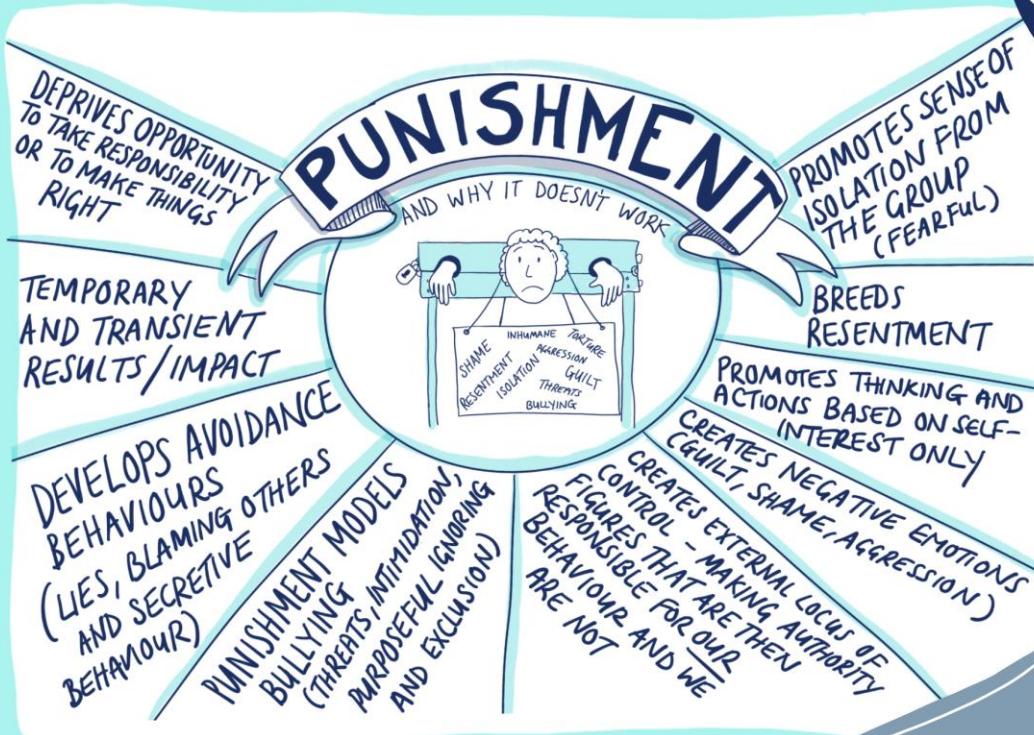 PUNISHMENT
AND WHY IT DOESN'T WORK
SHAME
RESENTMENT
INHUMANE
ISOLATION
AGGRESSION
TORTURE
GUILT
THREATS
BULLYING
DEPRIVES OPPORTUNITY
TO TAKE RESPONSIBILITY
OR TO MAKE THINGS
RIGHT
TEMPORARY
AND TRANSIENT
RESULTS/IMPACT
DEVELOPS AVOIDANCE
BEHAVIOURS
(LIES, BLAMING OTHERS
AND SECRETIVE
BEHAVIOUR)
PUNISHMENT MODELS
BULLYING
(THREATS, INTIMIDATION,
PURPOSEFUL IGNORING
AND EXCLUSION)
CREATES EXTERNAL LOCUS OF
CONTROL - MAKING AUTHORITY
FIGURES THAT ARE THEN
RESPONSIBLE FOR OUR
BEHAVIOUR AND WE
ARE NOT
CREATES NEGATIVE EMOTIONS
(GUILT, SHAME, AGGRESSION)
PROMOTES THINKING AND
ACTIONS BASED ON SELF-
INTEREST ONLY
BREEDS
RESENTMENT
PROMOTES SENSE OF
ISOLATION FROM
THE GROUP
(FEARFUL)